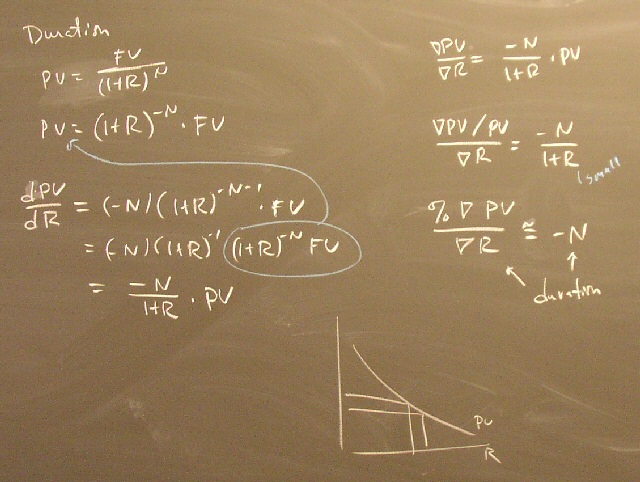 Duration
PV = FV / (1+R)^N
PV = (1+R)^-N · FV
dPV/dR = (-N)(1+R)^-N-1 · FV
= (-N)(1+R)^-1 (1+R)^-N FV
= -N/1+R · PV
∇PV/∇R = -N/1+R · PV
∇PV/PV / ∇R = -N/1+R
small
% ∇ PV / ∇R ≅ -N
duration
PV
R